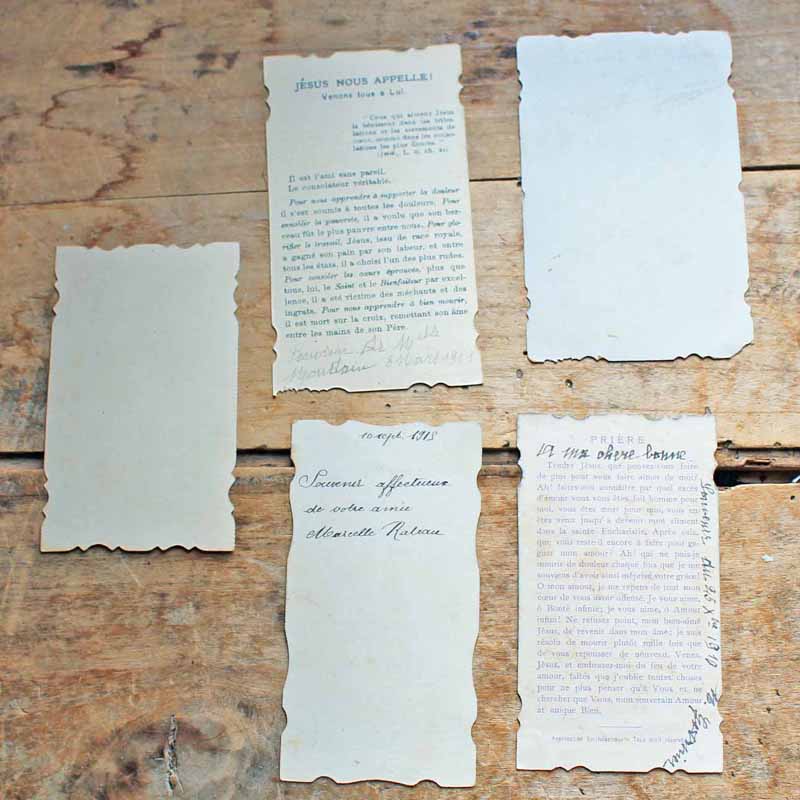 JÉSUS NOUS APPELLE!
Venons tous à Lui.
"Ceux qui aiment Jésus
le bénissent dans les tribu-
lations et les serrements de
cœur, comme dans les conso-
lations les plus douces."
Il est l'ami sans pareil.
Le consolateur véritable.
Pour nous apprendre à supporter la douleur
il s'est soumis à toutes les douleurs. Pour
ennoblir la pauvreté, il a voulu que son ber-
ceau fût le plus pauvre entre nous. Pour glo-
rifier le travail, Jésus, issu de race royale,
a gagné son pain par son labeur, et entre
tous les états, il a choisi l'un des plus rudes.
Pour consoler les cœurs éprouvés, plus que
tous, lui, le Saint et le Bienfaiteur par excel-
lence, il a été victime des méchants et des
ingrats. Pour nous apprendre à bien mourir,
il est mort sur la croix, remettant son âme
entre les mains de son Père.
Souvenir
8 Mars 1911
10 sept. 1915
Souvenir affectueux
de votre amie
Marcelle
PRIÈRE
A ma chere bonne
Tendre Jésus, que pouviez-vous faire
de plus pour vous faire aimer de moi?
Ah! faites-moi connaître par quel excès
d'amour vous vous êtes fait homme pour
moi, vous êtes mort pour moi, vous en
êtes venu jusqu'à devenir mon aliment
dans la sainte Eucharistie. Après cela,
que vous reste-il encore à faire pour ga-
gner mon amour? Ah! que ne puis-je
mourir de douleur chaque fois que je me
souviens d'avoir ainsi méprisé votre grâce!
O mon amour, je me repens de tout mon
cœur de vous avoir offensé. Je vous aime,
ô Bonté infinie; je vous aime, ô Amour
infini! Ne refusez point, mon bien-aimé
Jésus, de revenir dans mon âme; je suis
résolu de mourir plutôt mille fois que
de vous repousser de nouveau. Venez,
Jésus, et embrasez-moi du feu de votre
amour, faites que j'oublie toutes choses
pour ne plus penser qu'à Vous et ne
chercher que Vous, mon souverain Amour
et unique Bien.
Souvenir du 25 X